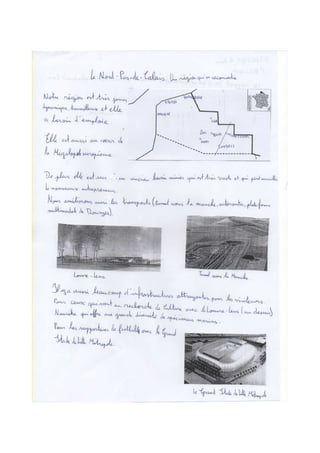 Le Nord-Pas-de-Calais. Un région qui se reconvertie
Notre région est très jeune
dynamique, travailleuse et elle
a besoin d'emploie
Elle est aussi au cœur de
la Mégalopole européenne
De plus elle est sur un ancien bassin minier qui est très vaste et qui peut accueillir
le nouveaux entrepreneur.
Nous améliorons aussi les transports (tunnel sous la manche, autoroutes, plateforme
multimodale de Dourges).
Louvre-Lens
Tunnel sous la Manche
Il y a aussi beaucoup d'infrastructures attrayantes pour les visiteurs.
Pour ceux qui sont en recherche de culture avec le Louvre-Lens (au dessus)
Nausicaa qui offre une grande diversité de spécimens marins.
Pour les supporters de football avec le Grand
Stade de Lille Métropole.
Le Grand Stade de Lille Métropole